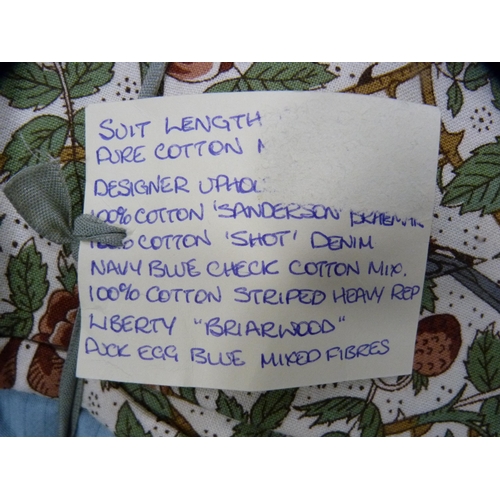 SUIT LENGTH
PURE COTTON
DESIGNER
100% COTTON 'SANDERSON'
100% COTTON 'SHOT' DENIM
NAVY BLUE CHECK COTTON MIX.
100% COTTON STRIPED HEAVY REP
LIBERTY "BRIARWOOD"
DUCK EGG BLUE MIXED FIBRES